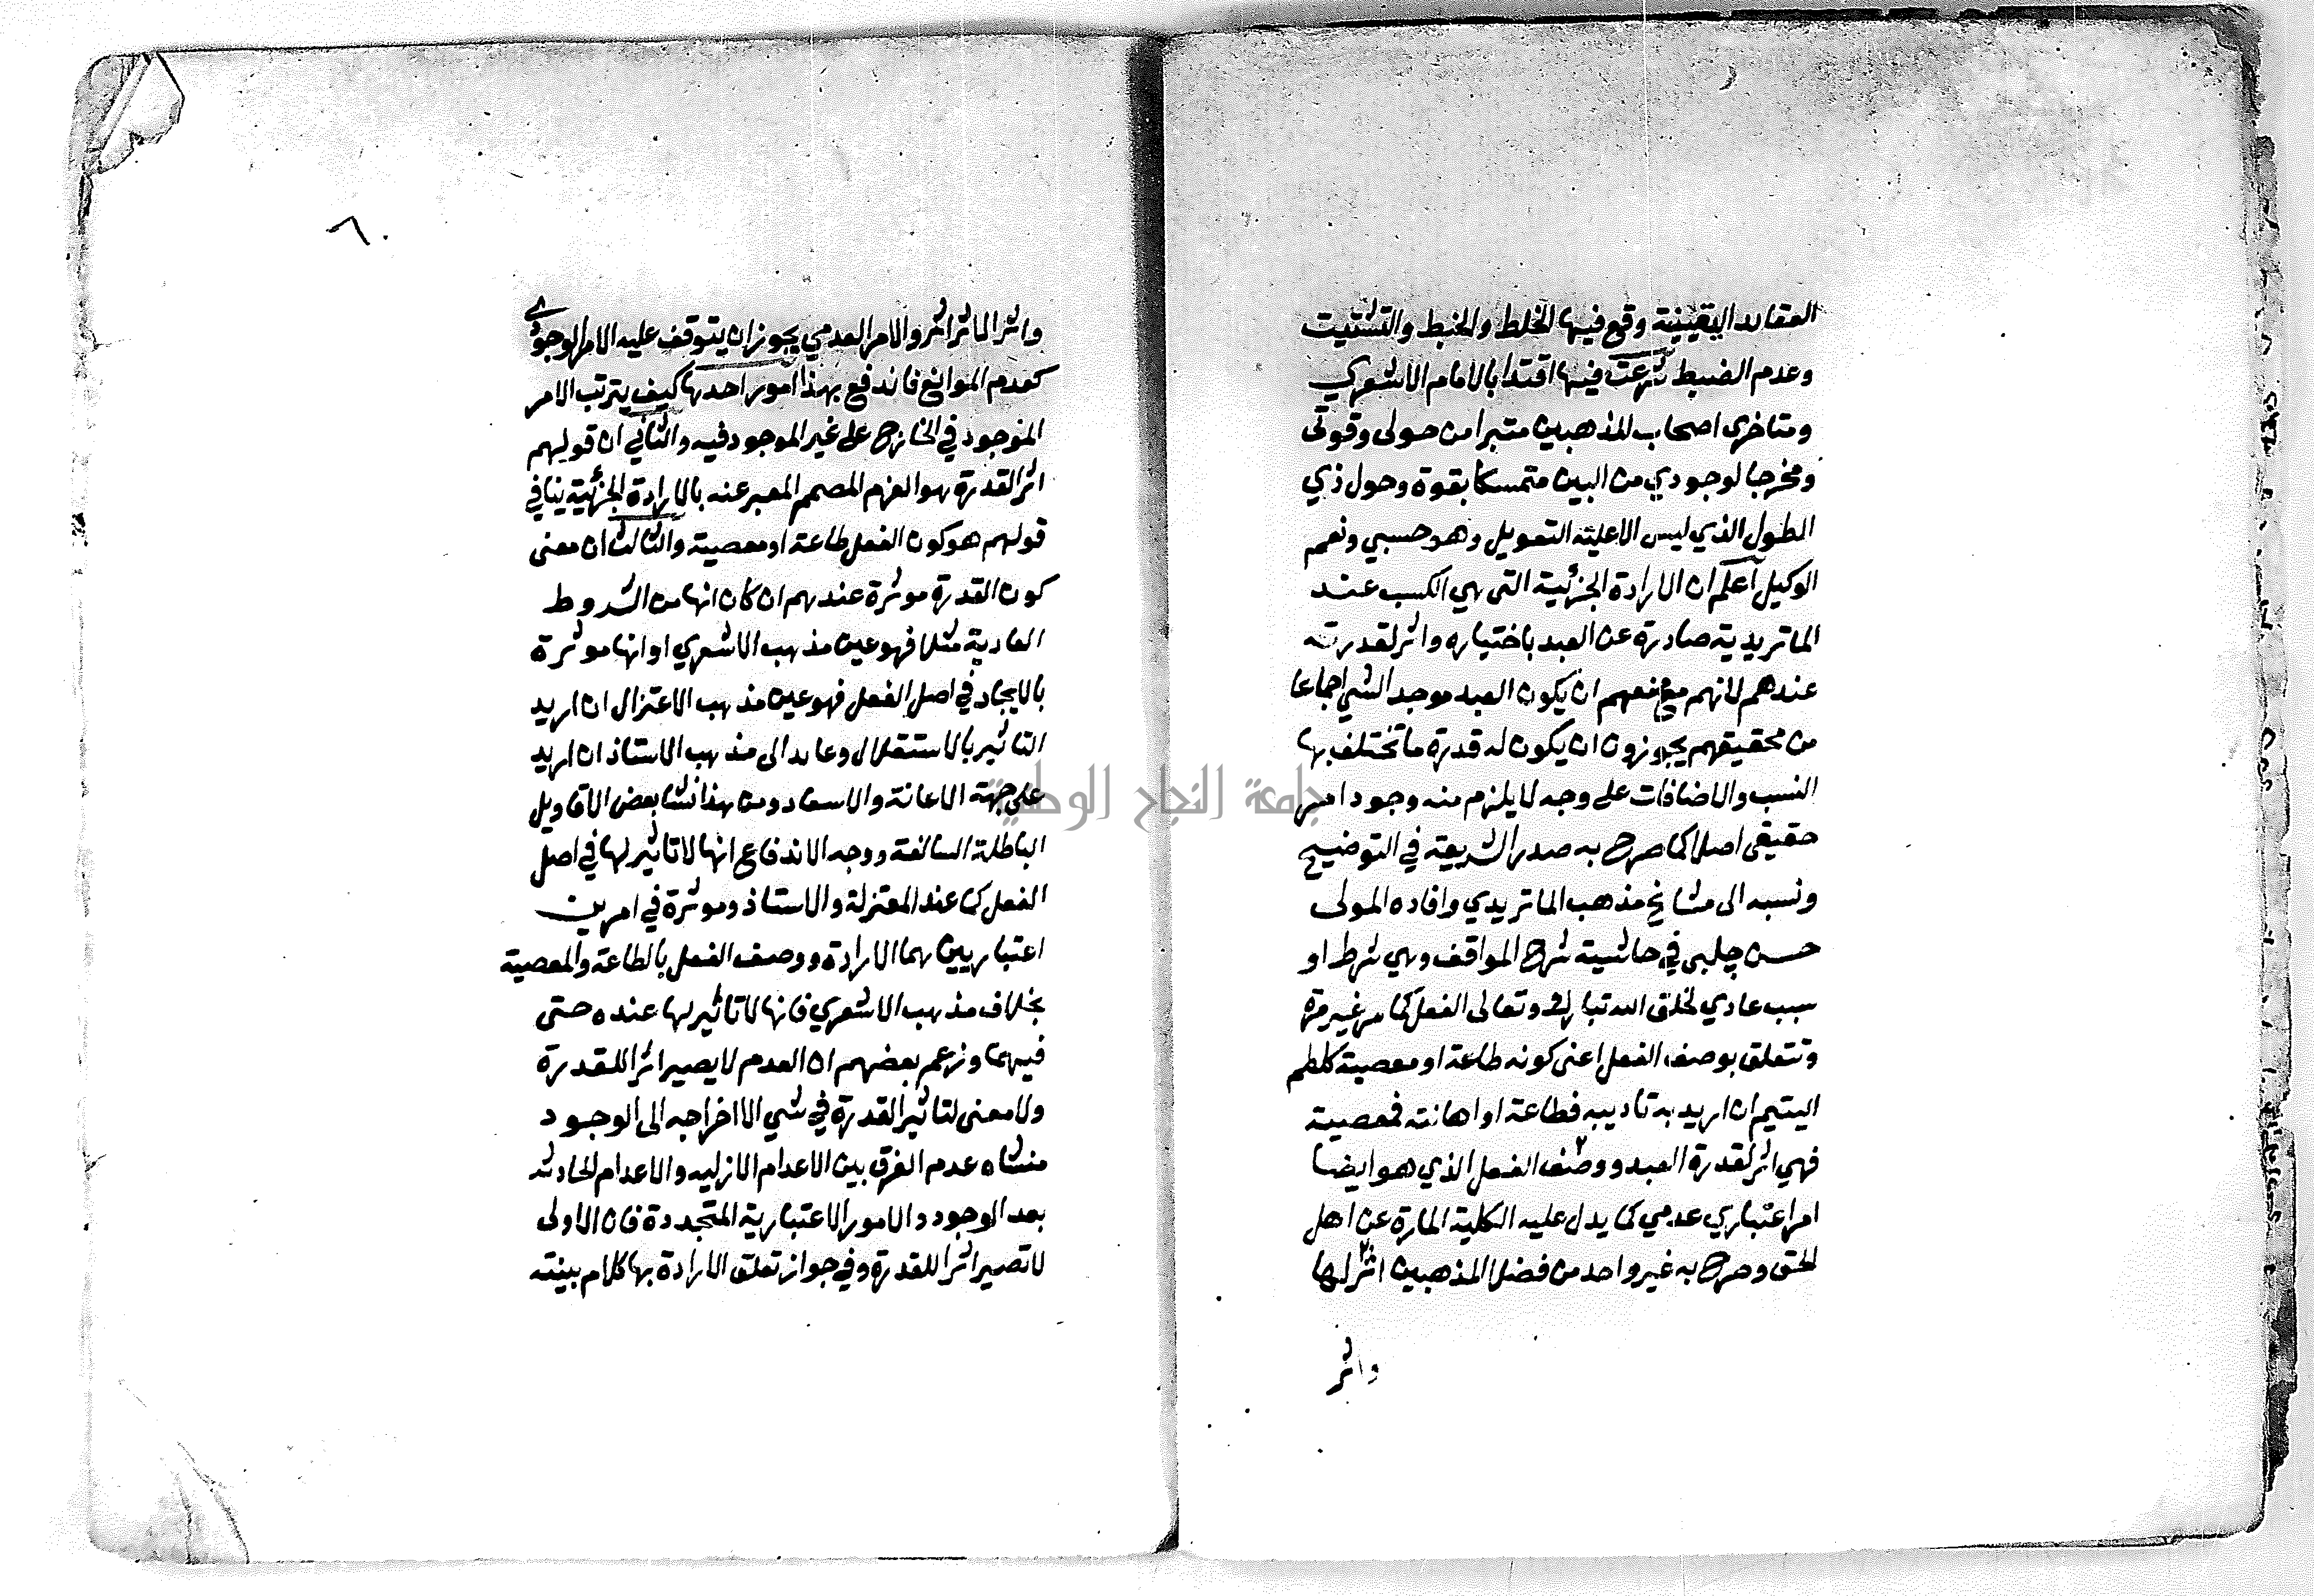 العقايد اليقينية وقع فيها الخلط والخبط والتشتيت
وعدم الضبط شرعت فيها اقتدا بالامام الاشعري
ومتاخري اصحاب المذهبين متبرا من حولى وقوتى
ومخرجا لوجودي من البين متمسكا بقوة وحول ذي
الطول الذي ليس الا عليه التعويل وهو حسبي ونعم
الوكيل اعلم ان الارادة الجزئية التى هي الكسب عند
الماتريدية صادرة عن العبد باختياره واثر لقدرته
عندهم لانهم مع منعهم ان يكون العبد موجد الشي اجماعا
من محققيهم يجوزون ان يكون له قدرة ما تختلف بها
النسب والاضافات على وجه لا يلزم منه وجود امر
حقيقى اصلا كما صرح به صدر الشريعة في التوضيح
ونسبه الى مشايخ مذهب الماتريدي وافاده المولى
حسن چلبى في حاشية شرح المواقف وهي شرط او
سبب عادي لخلق الله تبارك وتعالى الفعل كما مر غير مرة
وتتعلق بوصف الفعل اعنى كونه طاعة او معصية كلطم
اليتيم ان اريد به تاديبه فطاعة او اهانته فمعصية
فهي اثر لقدرة العبد ووصف الفعل الذي هو ايضا
امر اعتباري عدمي كما يدل عليه الكلية المارة عن اهل
الحق وصرح به غير واحد من فضلا المذهبين اثر لها
واثر
جامعة النجاح الوطنية
٦٠
واثر الماثر اثر والامر العدمي يجوز ان يتوقف عليه الامر الوجودي
كعدم الموانع فاندفع بهذا امور احدها كيف يترتب الامر
الموجود في الخارج على غير الموجود فيه والثاني ان قولهم
اثر القدرة هو العزم المصمم المعبر عنه بالارادة الجزئية ينافي
قولهم هو كون الفعل طاعة او معصية والثالث ان معنى
كون القدرة موثرة عندهم ان كان انها من الشروط
العادية مثلا فهو عين مذهب الاشعري او انها موثرة
بالايجاد في اصل الفعل فهو عين مذهب الاعتزال ان اريد
التاثير بالاستقلال وعايد الى مذهب الاستاذ ان اريد
على جهة الاعانة والاسعاد ومن هذا نشا بعض الاقاويل
الباطلة السالفة ووجه الاندفاع انها لا تاثير لها في اصل
الفعل كما عند المعتزلة والاستاذ وموثرة في امرين
اعتباريين هما الارادة ووصف الفعل بالطاعة والمعصية
بخلاف مذهب الاشعري فانها لا تاثير لها عنده حتى
فيهما وزعم بعضهم ان العدم لا يصير اثرا للقدرة
ولا معنى لتاثير القدرة في شي الا اخراجه الى الوجود
منشاه عدم الفرق بين الاعدام الازليه والاعدام الحادثه
بعد الوجود والامور الاعتبارية المتجددة فان الاولى
لا تصير اثرا للقدرة وفي جواز تعلق الارادة بها كلام بينته